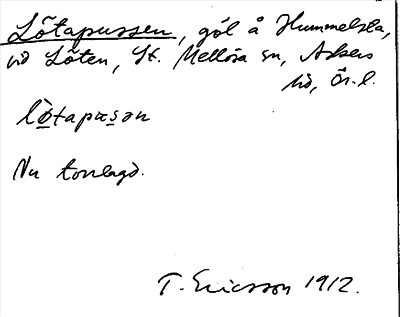 Lötapussen, göl å Hummelsta,
vid Löten, St. Mellösa sn, Askers
hd, Ör. l.
lø̀tapɯsən
Nu torrlagd.
T. Ericsson 1912.